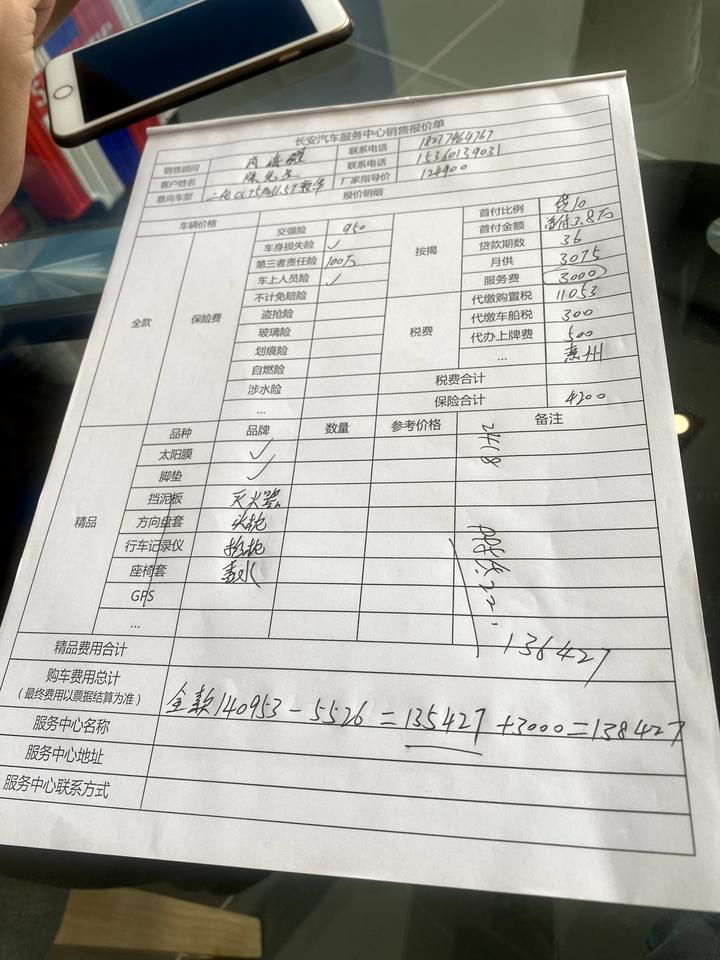 长安汽车服务中心销售报价单
销售顾问 联系电话 18277464767
客户姓名 陈先生 联系电话 15360139031
意向车型 二代CS75 厂家指导价 124900
报价明细
车辆价格
全款
保险费
交强险 950
车身损失险 ✓
第三者责任险 100万
车上人员险 ✓
不计免赔险
盗抢险
玻璃险
划痕险
自燃险
涉水险
...
按揭
首付比例
首付金额 首付3.8万
贷款期数 36
月供 3075
服务费 3000
税费
代缴购置税 11053
代缴车船税 300
代办上牌费 500
... 惠州
税费合计
保险合计 4200
精品
品种 品牌 数量 参考价格 备注
太阳膜 ✓
脚垫 ✓
挡泥板 灭火器
方向盘套 头枕
行车记录仪
座椅套
GPS
...
2418
136427
精品费用合计
购车费用总计
(最终费用以票据结算为准)
全款140953-5526=135427+3000=138427
服务中心名称
服务中心地址
服务中心联系方式